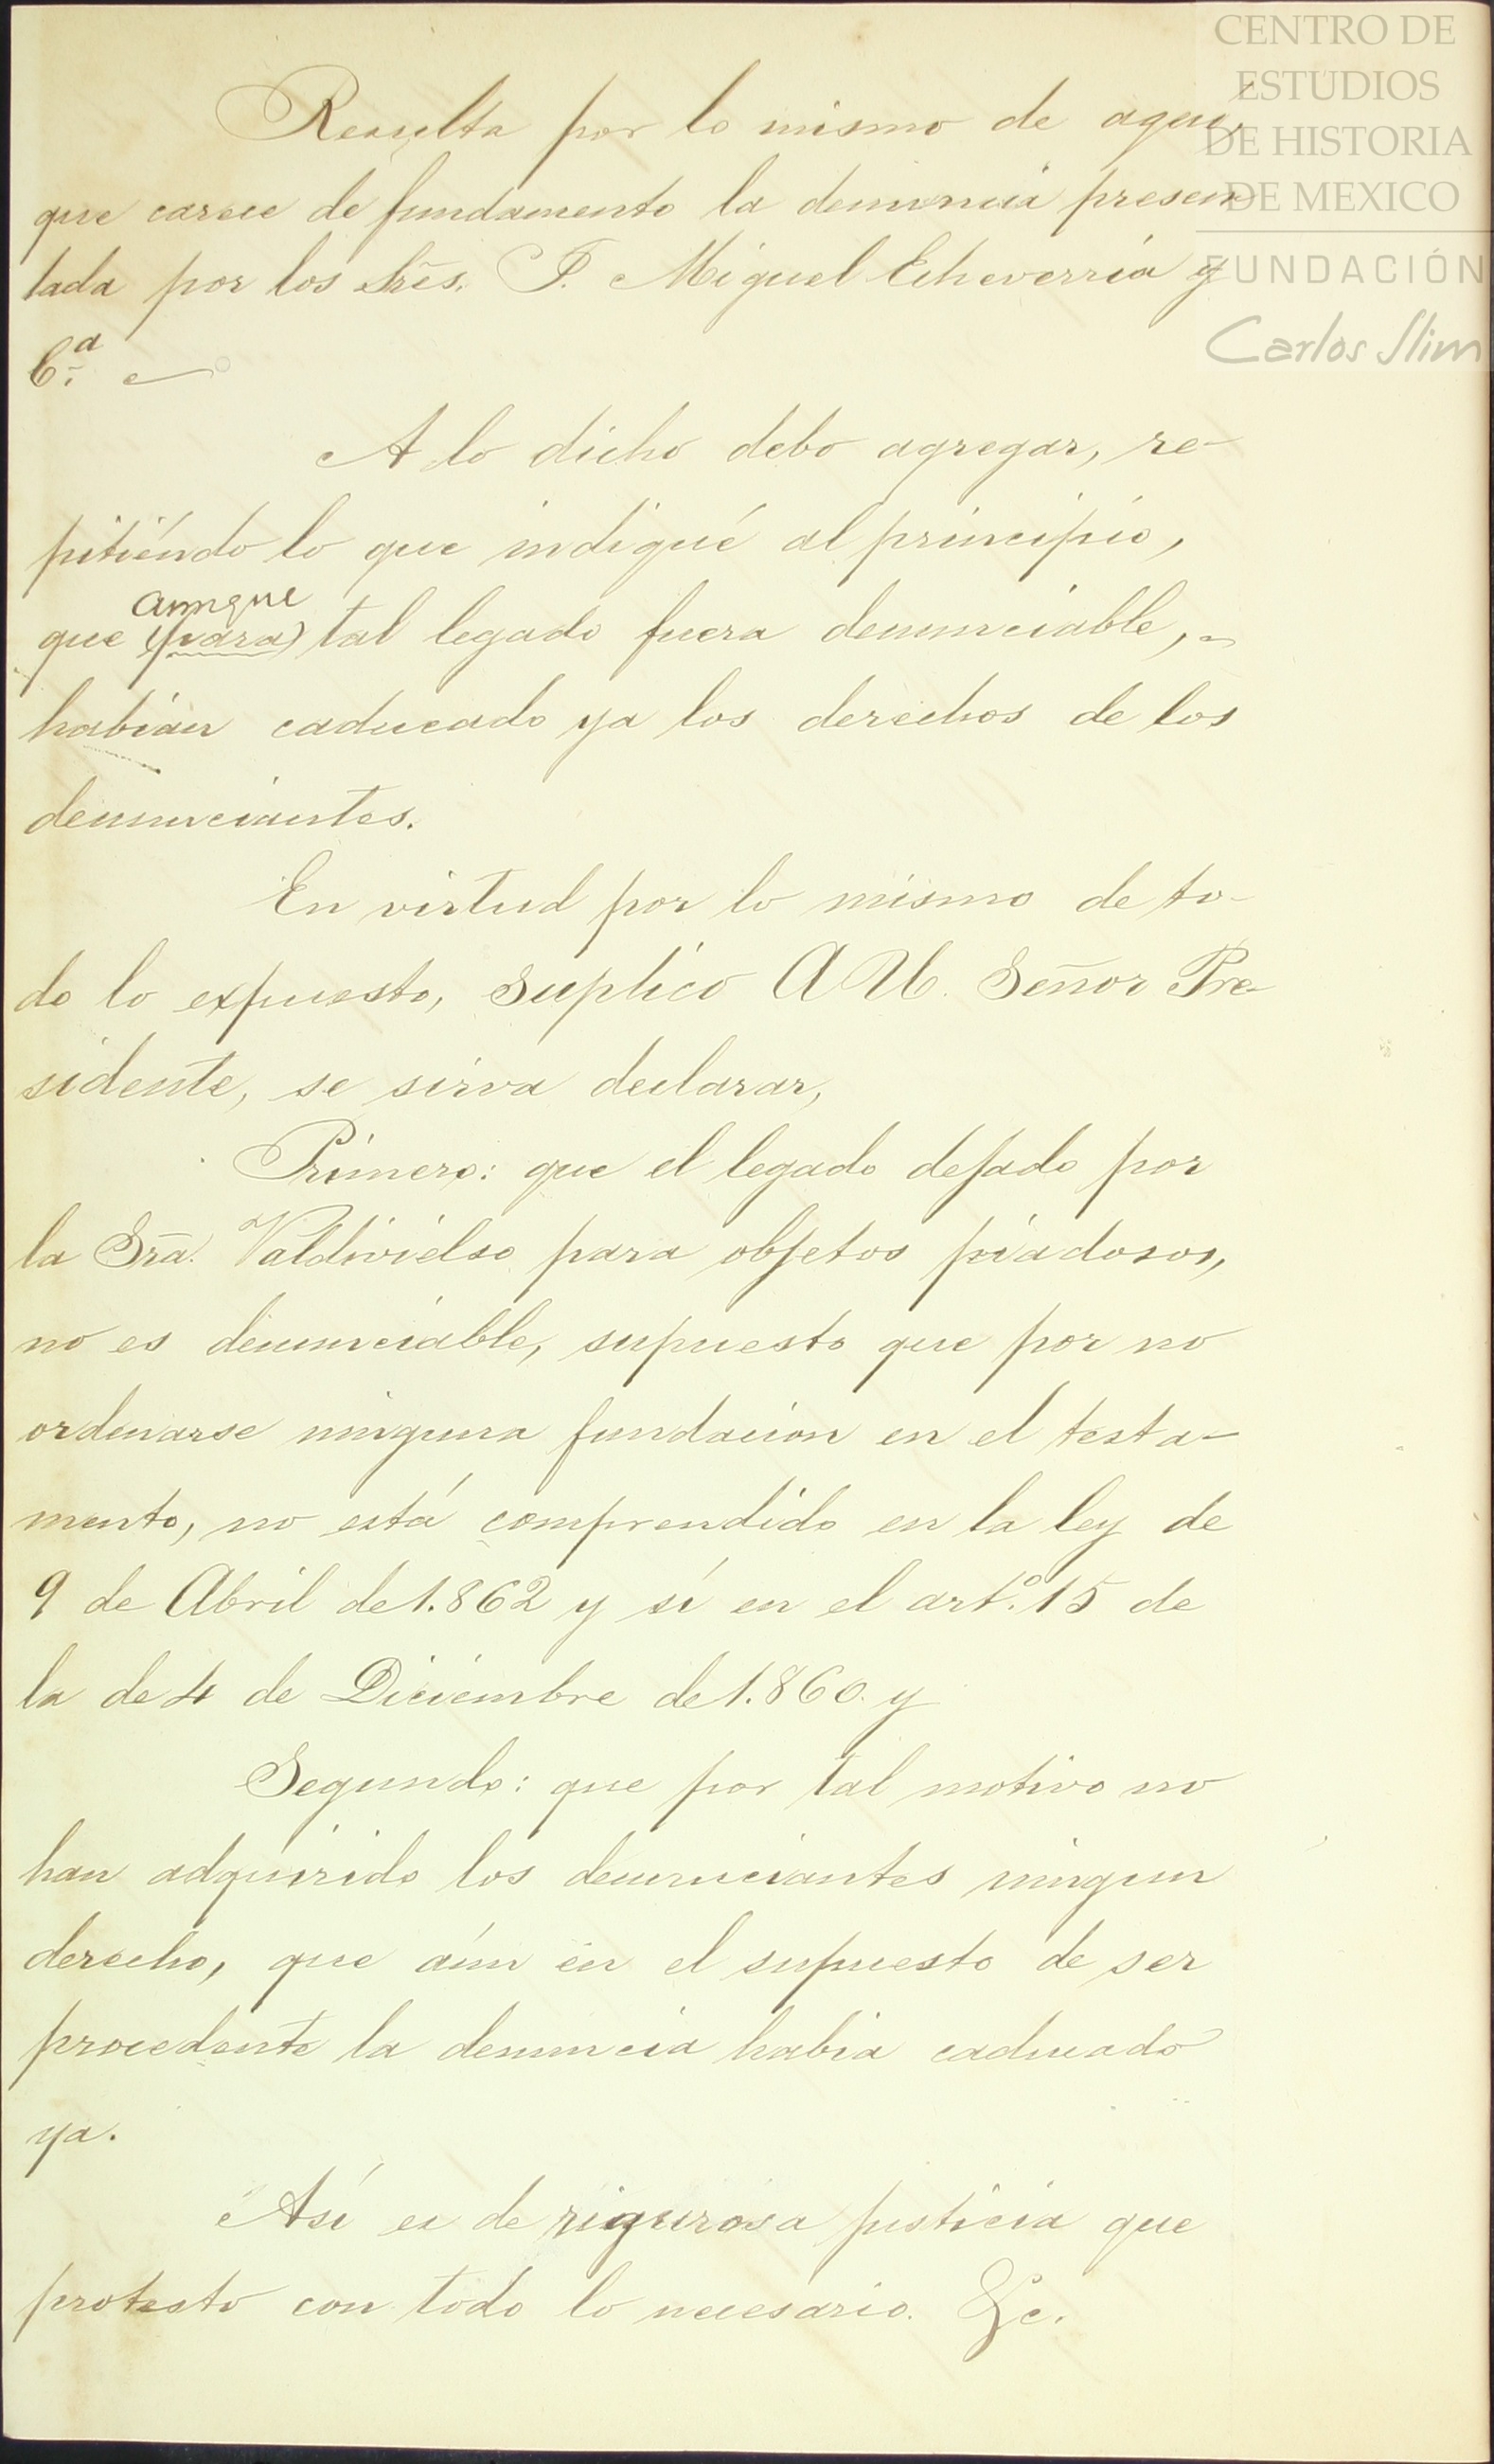 CENTRO DE
ESTUDIOS
DE HISTORIA
DE MEXICO
FUNDACIÓN
Carlos Slim
Resulta por lo mismo de aquí,
que carece de fundamento la denuncia presen
tada por los Sres. P. Miguel Echeverría y
Cª
A lo dicho debo agregar, re-
pitiéndo lo que indiqué al principio,
aunque
que (para) tal legado fuera denunciable,
habían caducado ya los derechos de los
denunciantes.
En virtud por lo mismo de to-
do lo expuesto, suplico A U. Señor Pre-
sidente, se sirva declarar,
Primero: que el legado dejado por
la Sra. Valdivielso para objetos piadosos,
no es denunciable, supuesto que por no
ordenarse ninguna fundacion en el testa-
mento, no está comprendido en la ley de
9 de Abril de 1.862 y sí en el artº. 15 de
la de 4 de Diciembre de 1.860. y
Segundo: que por tal motivo no
han adquirido los denunciantes ningun
derecho, que aún en el supuesto de ser
procedente la denuncia habia caducado
ya.
Así es de rigurosa justicia que
protesto con todo lo necesario. &c.